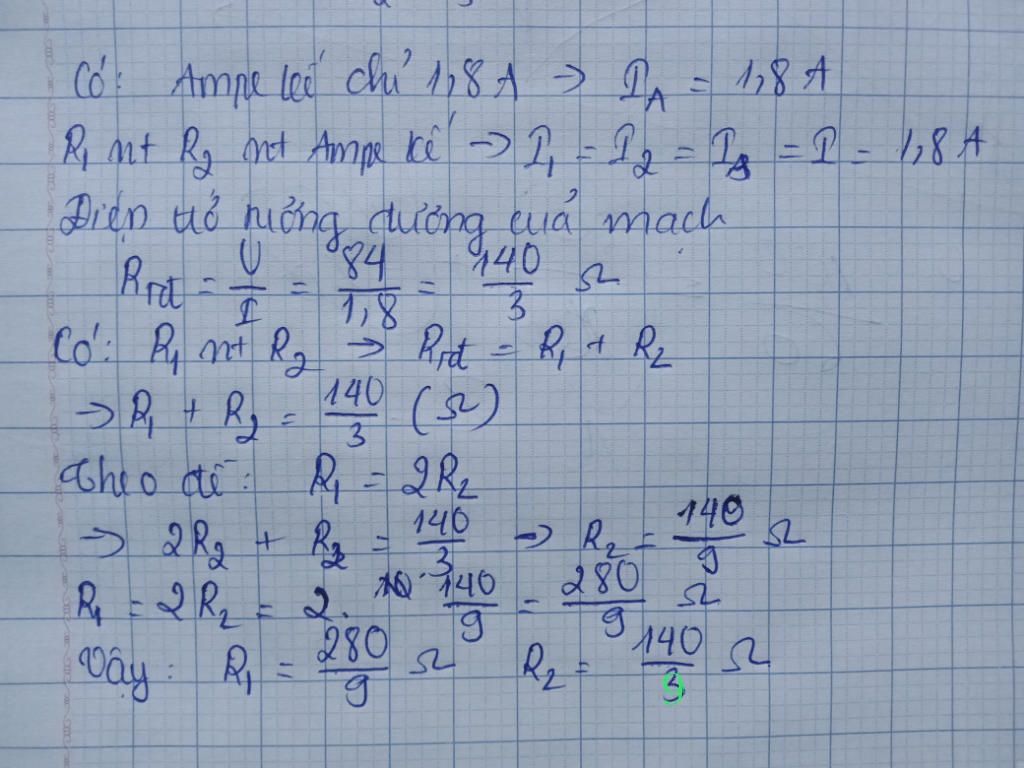 Có: Ampe kế chỉ 1,8 A → I_A = 1,8 A
R₁ nt R₂ nt Ampe kế → I₁ = I₂ = I_A = I = 1,8 A
Điện trở tương đương của mạch
R_tđ = U/I = 84/1,8 = 140/3 Ω
Có: R₁ nt R₂ → R_tđ = R₁ + R₂
→ R₁ + R₂ = 140/3 (Ω)
Theo đề: R₁ = 2R₂
→ 2R₂ + R₂ = 140/3 → R₂ = 140/9 Ω
R₁ = 2R₂ = 2. 140/9 = 280/9 Ω
Vậy: R₁ = 280/9 Ω R₂ = 140/3 Ω